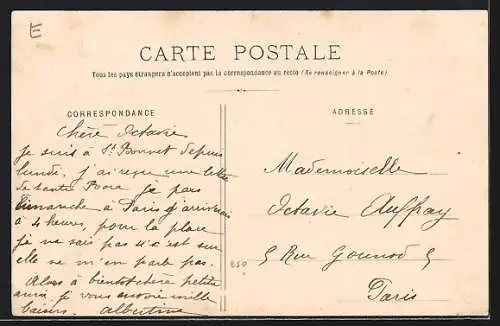 E
CARTE POSTALE
Tous les pays étrangers n'acceptent pas la correspondance au recto (Se renseigner à la Poste)
CORRESPONDANCE
Chère Octavie
Je suis à St Bonnet depuis
lundi, j'ai reçue une lettre
de je pars
Dimanche à Paris j'arriverai
à 4 heures, pour la place
je ne sais pas si c'est sur
elle ne m'en parle pas.
Alors à bientôt chère petite
amie je vous envoie mille
baisers. Albertine
ADRESSE
Mademoiselle
Octavie Auffray
5 Rue Gounod 5
Paris